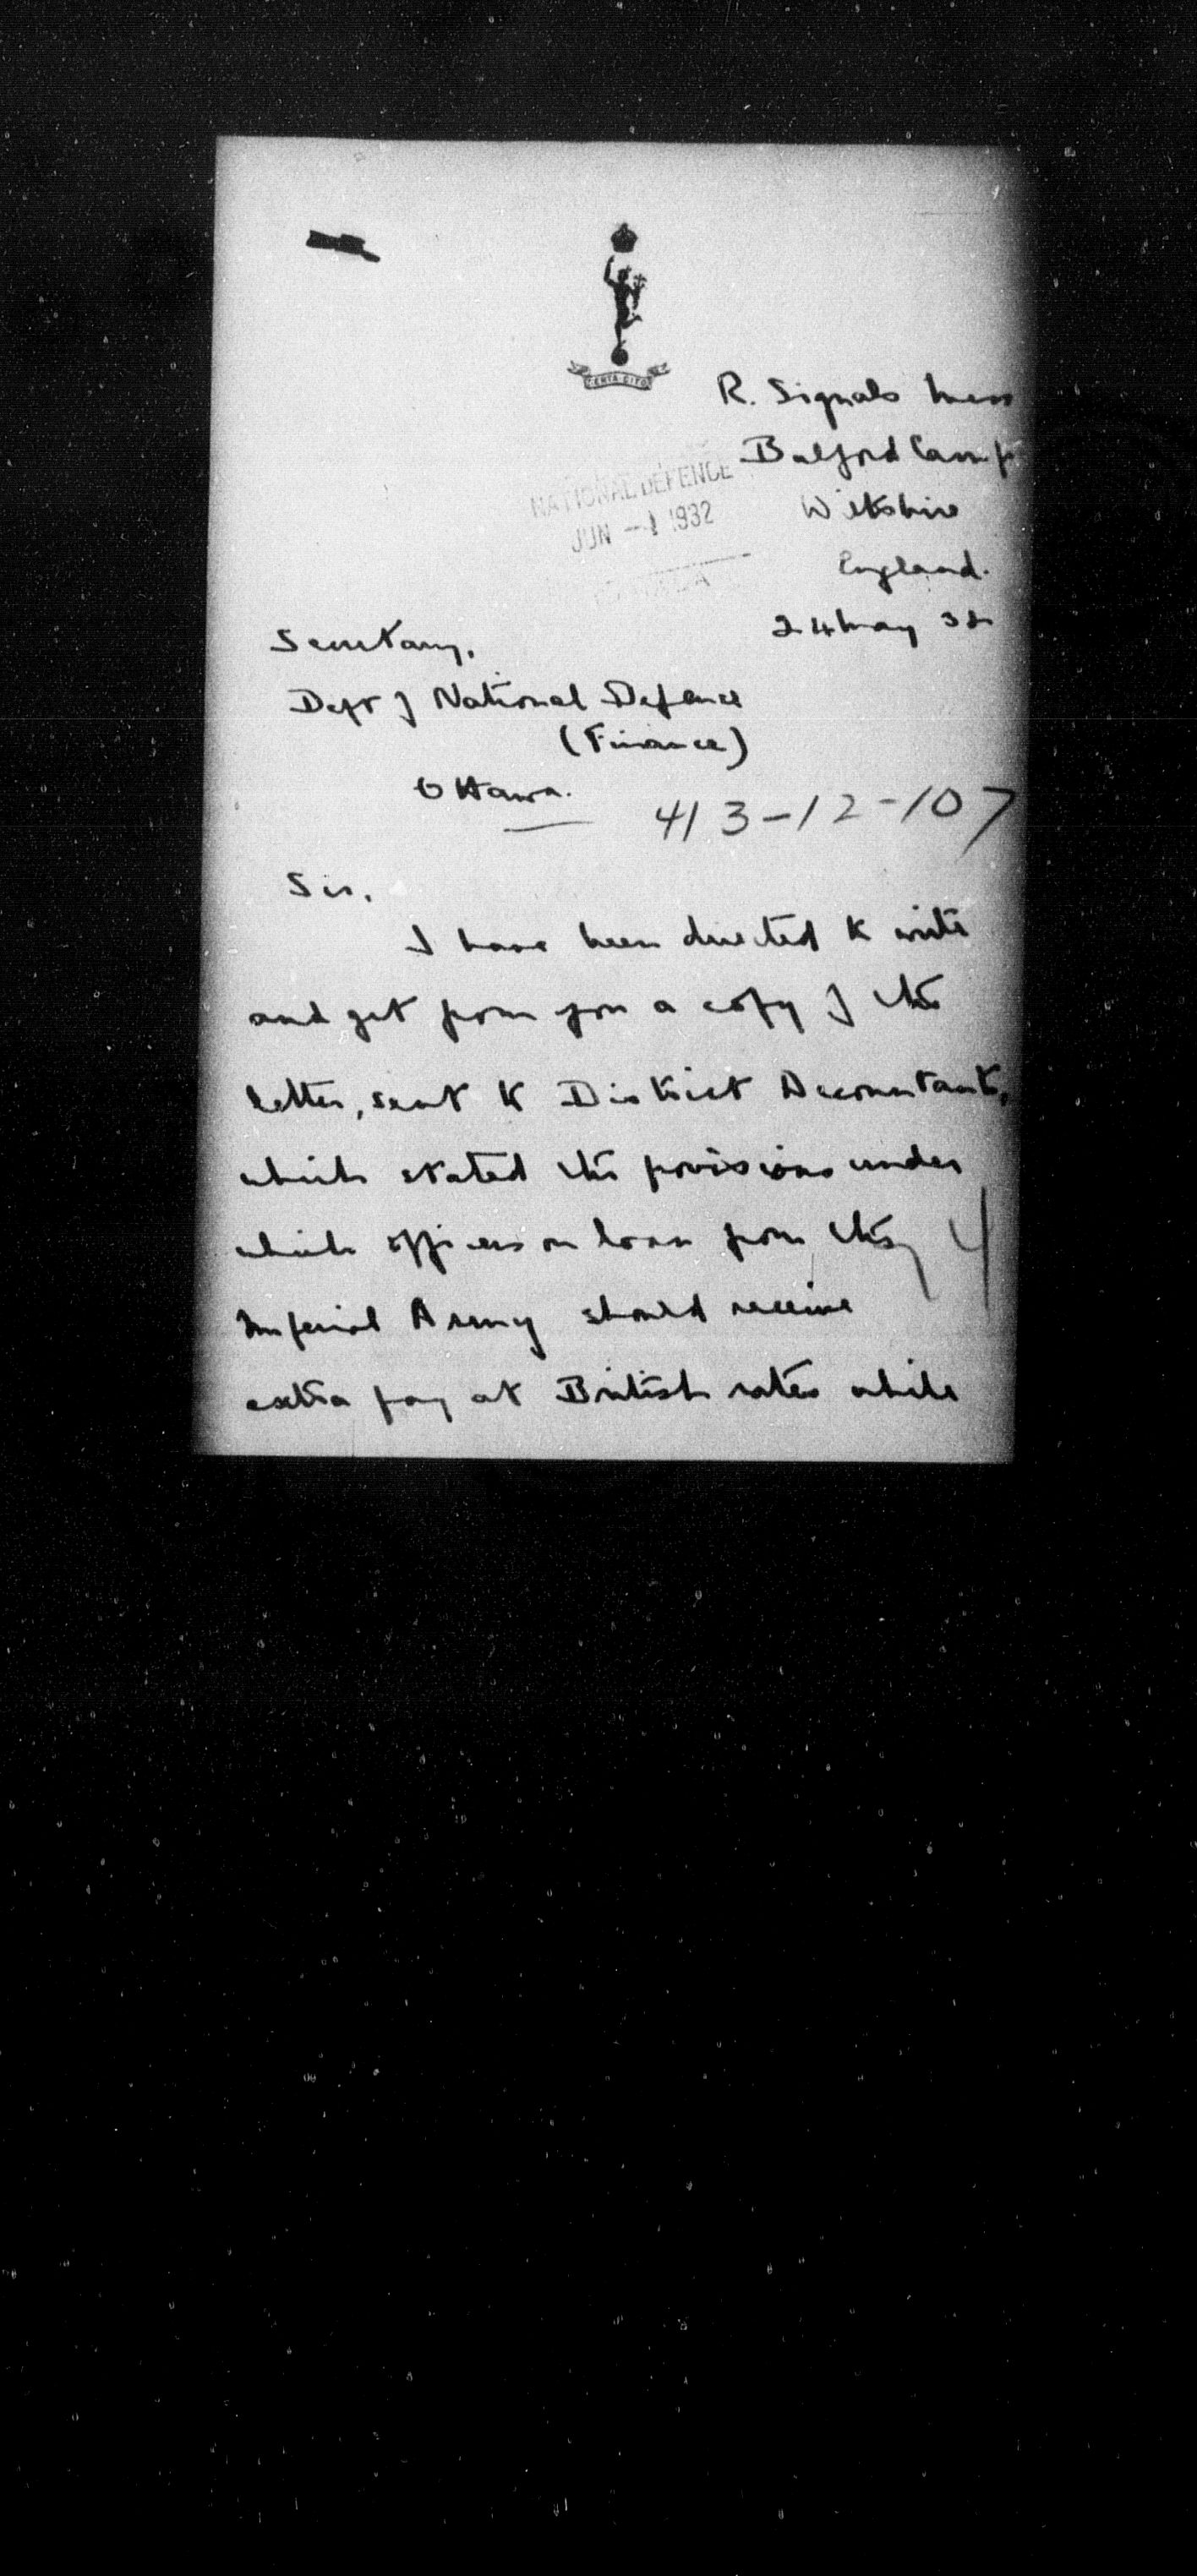 CERTA CITO
R. Signals Mess
Bulford Camp
Wiltshire
England.
24 May 32
NATIONAL DEFENCE
JUN -1 1932
CANADA
Secretary,
Dept of National Defence
(Finance)
Ottawa.
413-12-107
Sir,
I have been directed to write
and get from you a copy of the
letter, sent to District Accountants,
which stated the provisions under
which officers on loan from the
Imperial Army should receive
extra pay at British rates while